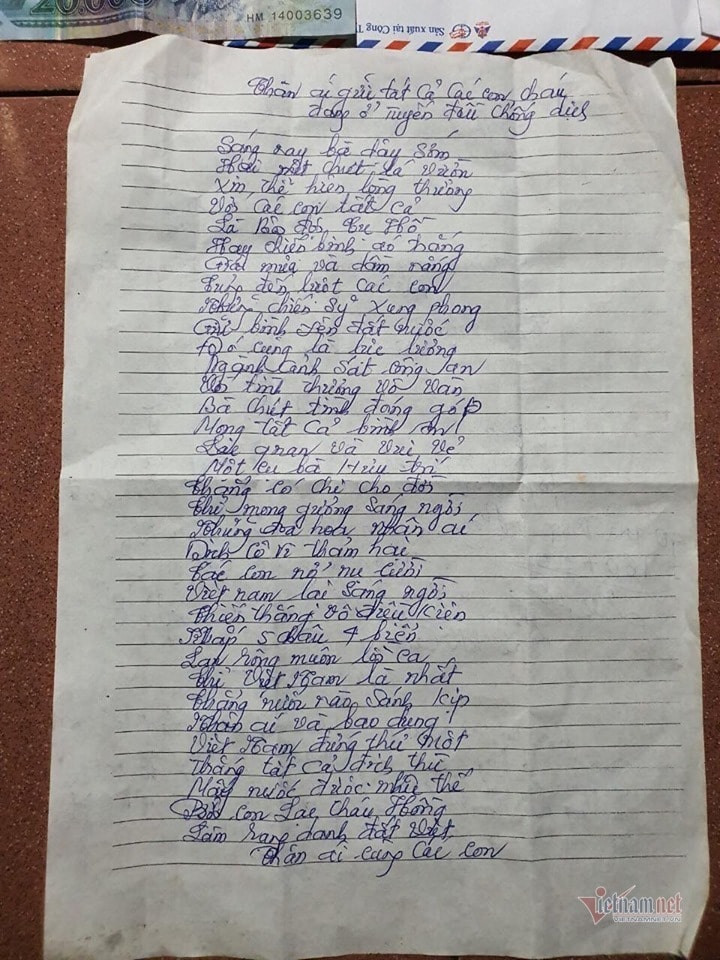 20.000
HM 14003639
Sản xuất tại Công T
Thân ái gửi tất cả các con cháu
đang ở tuyến đầu chống dịch
Sáng nay bà dậy sớm
Hái một chút lá vườn
Xin thể hiện lòng thương
Với các con tất cả
Là Bộ đội Cụ Hồ
Hay chiến binh áo trắng
mưa và dầm nắng
đến lượt các con
chiến sỹ xung phong
Giữ bình yên đất nước
Đó cũng là lực lượng
Ngành cảnh sát công an
Với tình thương vô vàn
Bà chút tình đóng góp
Mong tất cả bình an
Lạc quan và vui vẻ
Một cụ bà Hưu trí
Chẳng có chi cho đời
Chỉ mong gương sáng ngời
Những đoá hoa nhân ái
Dịch cô vi thảm hại
Các con nở nụ cười
Việt nam lại sáng ngời
Chiến thắng vô điều kiện
Khắp 5 châu 4 biển
Lan rộng muôn lời ca
Chỉ Việt Nam là nhất
Chẳng nước nào sánh kịp
Nhân ái và bao dung
Việt Nam đứng thứ một
Thắng tất cả địch thù
Mấy nước được như thế
Bởi con Lạc cháu Hồng
Làm rạng danh đất Việt
Thân ái cùng các con
Vietnamnet
VIETNAMNET.VN